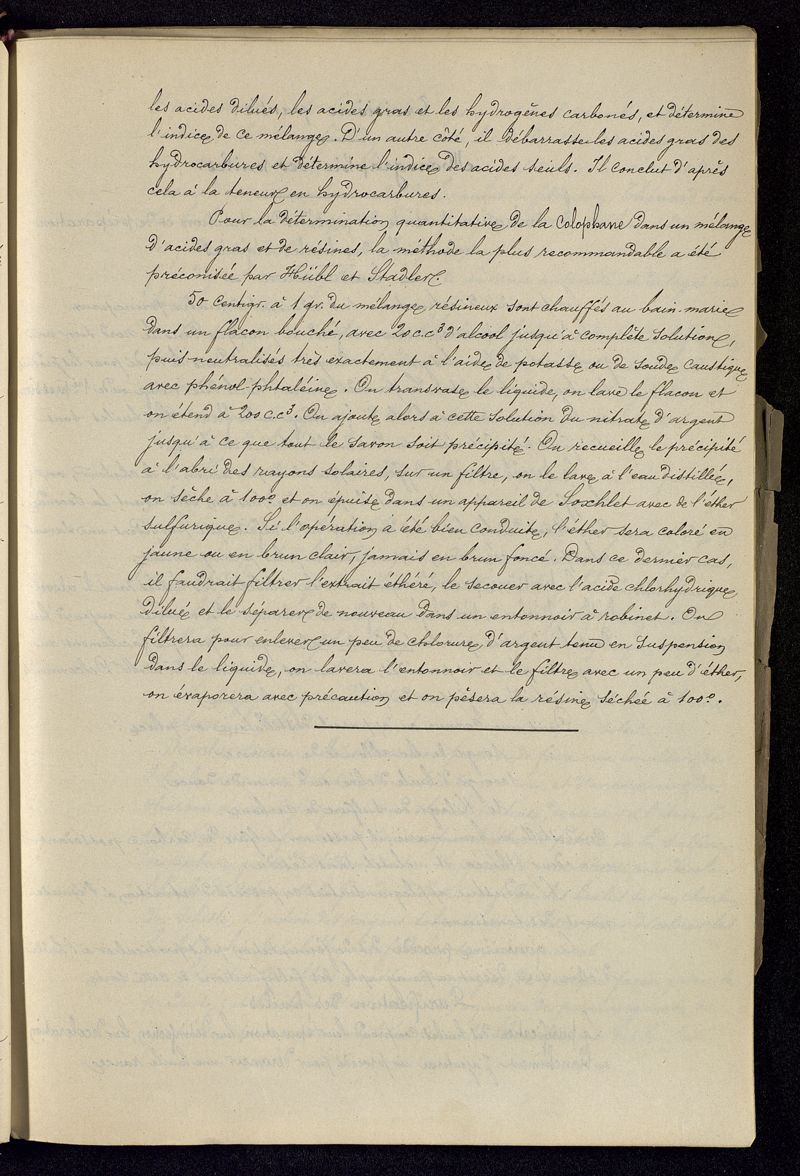 les acides dilués, les acides gras et les hydrogènes carbonés, et détermine
l'indice de ce mélange. D'un autre côté, il débarrasse les acides gras des
hydrocarbures et détermine l'indice des acides seuls. Il conclut d'après
cela à la teneur en hydrocarbures.
Pour la détermination quantitative de la colophane dans un mélange
d'acides gras et de résines, la méthode la plus recommandable a été
préconisée par Hübl et Stadler.
50 centigr. à 1 gr. du mélange résineux sont chauffés au bain-marie
dans un flacon bouché, avec 20 c.c³ d'alcool jusqu'à complète solution,
puis neutralisés très exactement à l'aide de potasse ou de soude caustique
avec phénol-phtaléine. On transvase le liquide, on lave le flacon et
on étend à 200 c.c³. On ajoute alors à cette solution du nitrate d'argent
jusqu'à ce que tout le savon soit précipité. On recueille le précipité
à l'abri des rayons solaires, sur un filtre, on le lave à l'eau distillée,
on sèche à 100° et on épuise dans un appareil de Soxhlet avec de l'éther
sulfurique. Si l'opération a été bien conduite, l'éther sera coloré en
jaune ou en brun clair, jamais en brun foncé. Dans ce dernier cas,
il faudrait filtrer l'extrait éthéré, le secouer avec l'acide chlorhydrique
dilué et le séparer de nouveau dans un entonnoir à robinet. On
filtrera pour enlever un peu de chlorure d'argent tenu en suspension
dans le liquide, on lavera l'entonnoir et le filtre avec un peu d'éther,
on évaporera avec précaution et on pèsera la résine séchée à 100°.